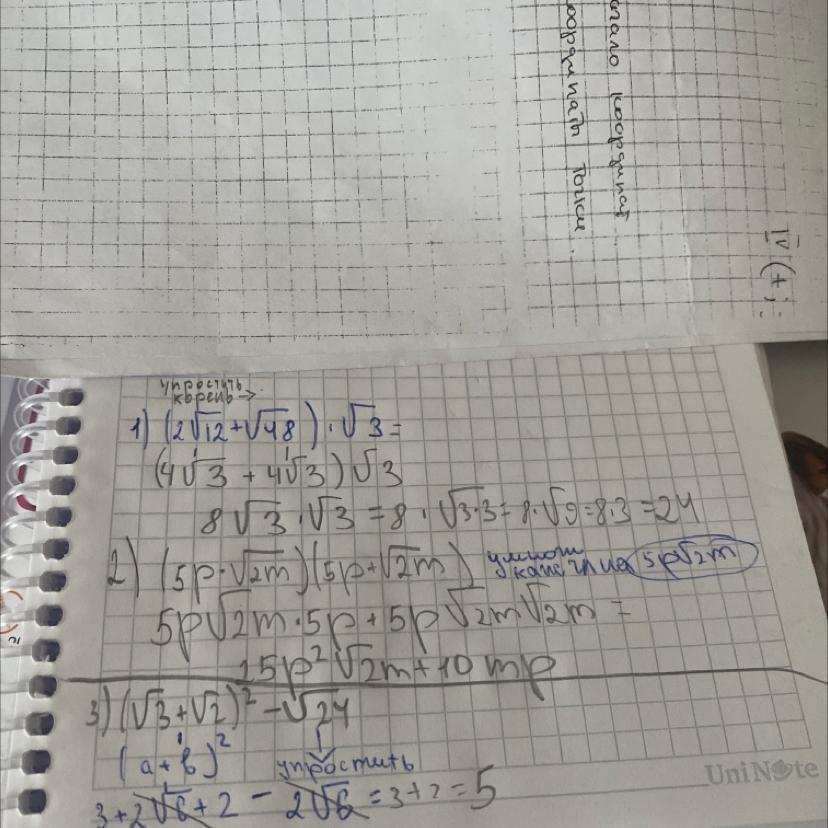 координат
координаты точки.
IV (+):
упростить
корень →
1) (2√12+√48) · √3 =
(4√3 + 4√3)√3
8√3 · √3 = 8 · √3·3 = 8·√9 = 8·3 = 24
2) (5p·√2m)(5p+√2m) умнож
на 5p√2m
5p√2m·5p + 5p√2m√2m =
25p²√2m+10mp
3) (√3+√2)² - √24
(a+b)² упростить
3+2√6+2 - 2√6 = 3+2 = 5
UniNote